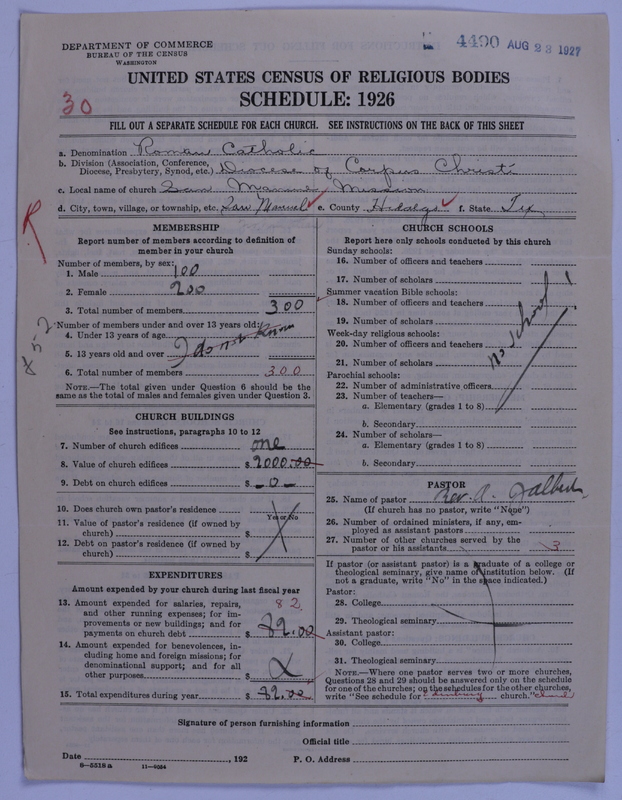 DEPARTMENT OF COMMERCE
BUREAU OF THE CENSUS
WASHINGTON
4490 AUG 23 1927
UNITED STATES CENSUS OF RELIGIOUS BODIES
SCHEDULE: 1926
30
FILL OUT A SEPARATE SCHEDULE FOR EACH CHURCH. SEE INSTRUCTIONS ON THE BACK OF THIS SHEET
a. Denomination Roman Catholic
b. Division (Association, Conference, Diocese, Presbytery, Synod, etc.) Diocese of Corpus Christi
c. Local name of church San Manuel Mission
d. City, town, village, or township, etc. San Manuel e. County Hidalgo f. State Tex
R
852
MEMBERSHIP
Report number of members according to definition of member in your church
Number of members, by sex:
1. Male 100
2. Female 200
3. Total number of members 300
Number of members under and over 13 years old:
4. Under 13 years of age
5. 13 years old and over I do not Know
6. Total number of members 300
NOTE.—The total given under Question 6 should be the same as the total of males and females given under Question 3.
CHURCH BUILDINGS
See instructions, paragraphs 10 to 12
7. Number of church edifices one
8. Value of church edifices $ 2000.00
9. Debt on church edifices $ -0-
10. Does church own pastor's residence
Yes or No
11. Value of pastor's residence (if owned by church) $
12. Debt on pastor's residence (if owned by church) $
EXPENDITURES
Amount expended by your church during last fiscal year
13. Amount expended for salaries, repairs, and other running expenses; for improvements or new buildings; and for payments on church debt $ 82.00
82
14. Amount expended for benevolences, including home and foreign missions; for denominational support; and for all other purposes $
15. Total expenditures during year $ 82.00
CHURCH SCHOOLS
Report here only schools conducted by this church
Sunday schools:
16. Number of officers and teachers
17. Number of scholars
Summer vacation Bible schools:
18. Number of officers and teachers
19. Number of scholars
Week-day religious schools:
20. Number of officers and teachers
21. Number of scholars
no school!
Parochial schools:
22. Number of administrative officers
23. Number of teachers—
a. Elementary (grades 1 to 8)
b. Secondary
24. Number of scholars—
a. Elementary (grades 1 to 8)
b. Secondary
PASTOR
25. Name of pastor Rev. A.
(If church has no pastor, write "None")
26. Number of ordained ministers, if any, employed as assistant pastors
27. Number of other churches served by the pastor or his assistants 3
If pastor (or assistant pastor) is a graduate of a college or theological seminary, give name of institution below. (If not a graduate, write "No" in the space indicated.)
Pastor:
28. College
29. Theological seminary
Assistant pastor:
30. College
31. Theological seminary
NOTE.—Where one pastor serves two or more churches, Questions 28 and 29 should be answered only on the schedule for one of the churches; on the schedules for the other churches, write "See schedule for Edinburg church."
Signature of person furnishing information
Official title
Date , 192
P. O. Address
8—5518 a 11—9034